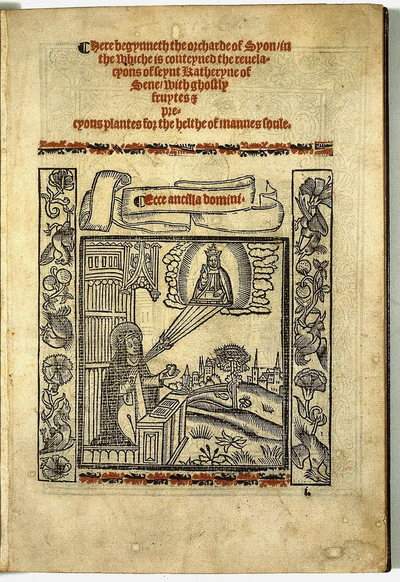 ¶Here begynneth the orcharde of Syon/in
the whiche is conteyned the reuela-
cyons of seynt Katheryne of
Sene/with ghostly
fruytes &
pre-
cyons plantes for the helthe of mannes soule.
¶Ecce ancilla domini.